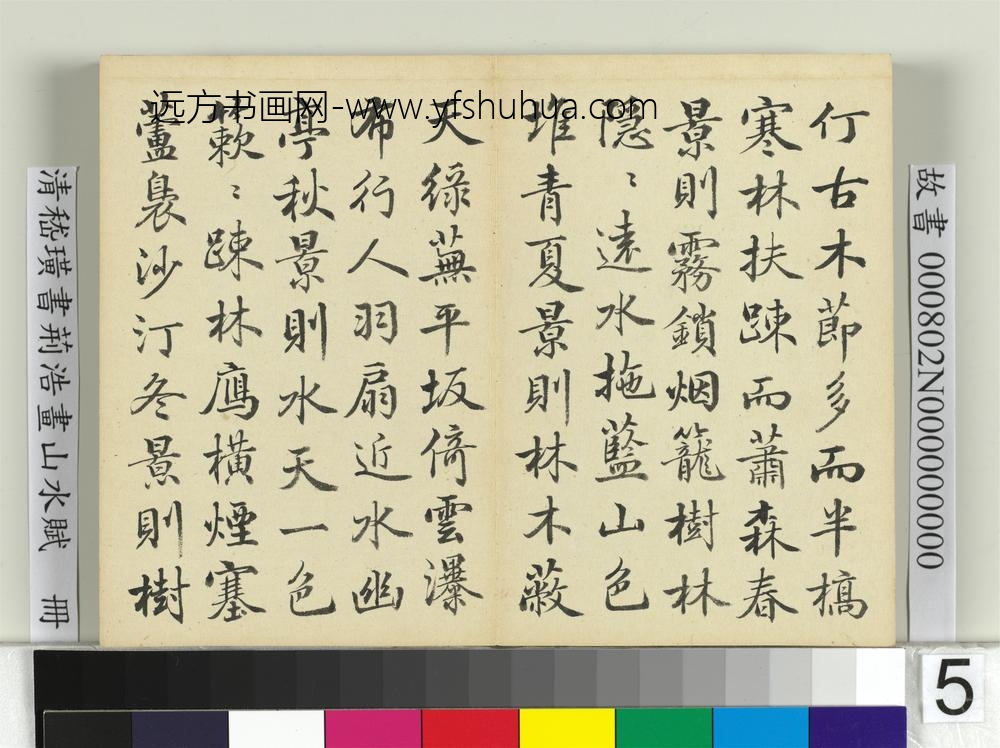 远方书画网-www.yfshuhua.com
故書 000802N000000000
仃古木節多而半槁
寒林扶疎而蕭森春
景則霧鎖烟籠樹林
隱〻遠水拖藍山色
堆青夏景則林木蔽
天綠蕪平坂倚雲瀑
布行人羽扇近水幽
亭秋景則水天一色
簌〻疎林鴈橫煙塞
蘆裊沙汀冬景則樹
清嵇璜書荊浩畫山水賦 冊
5